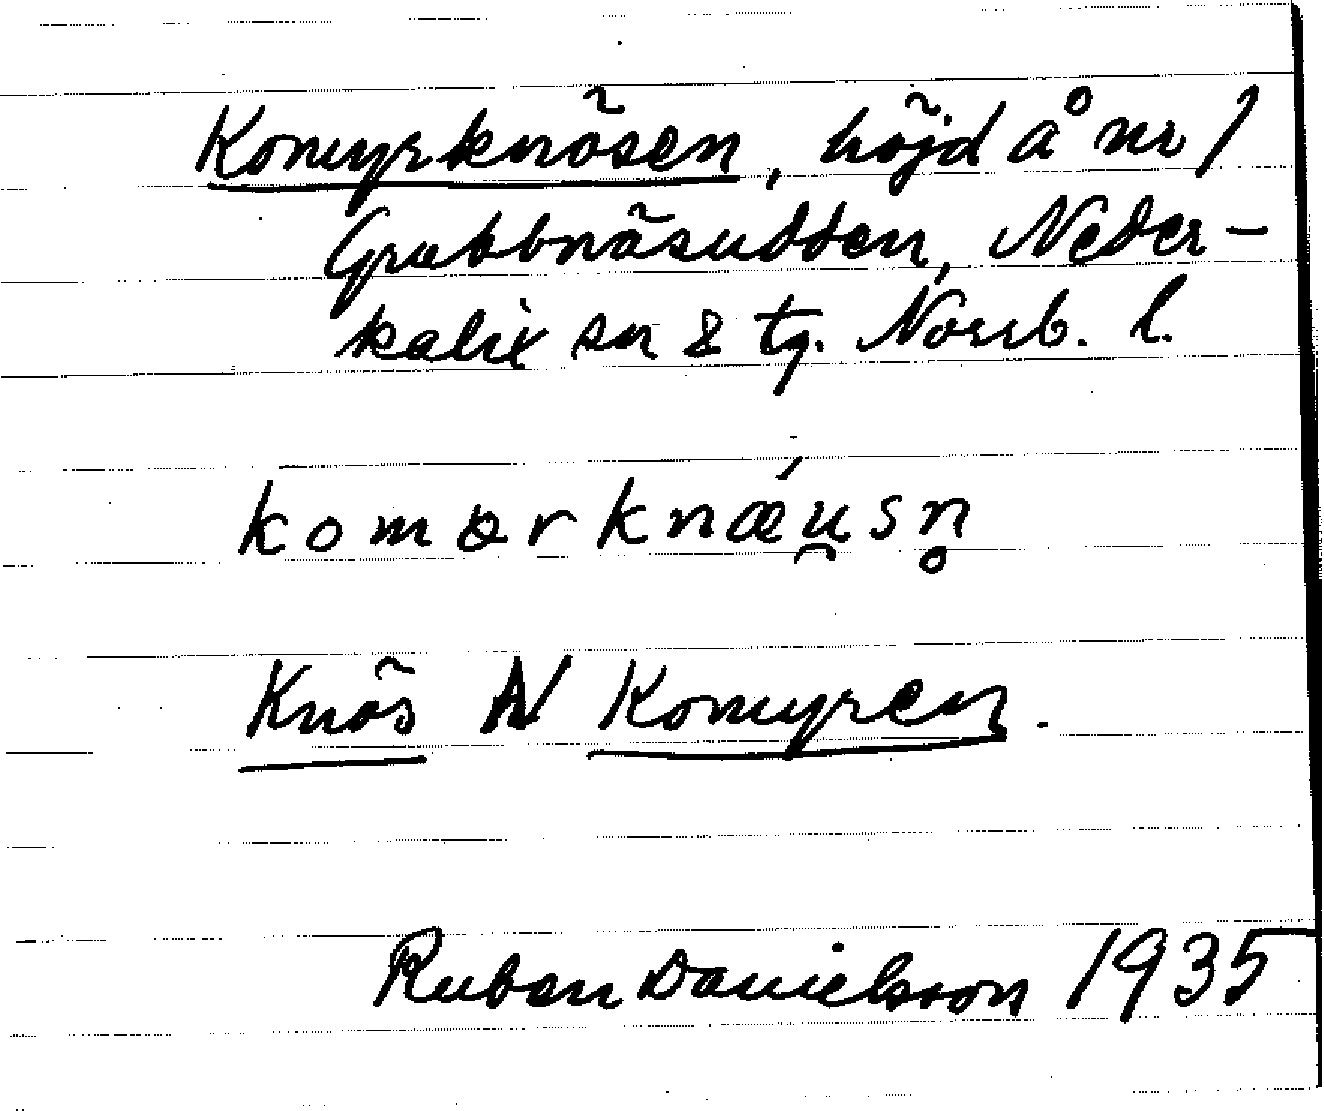 Komyrknösen, höjd å nr 1
Grubbnäsudden, Neder-
kalix sn & tg. Norrb. l.
komørknǽu̯sn̥
Knös N Komyren.
Ruben Danielsson 1935